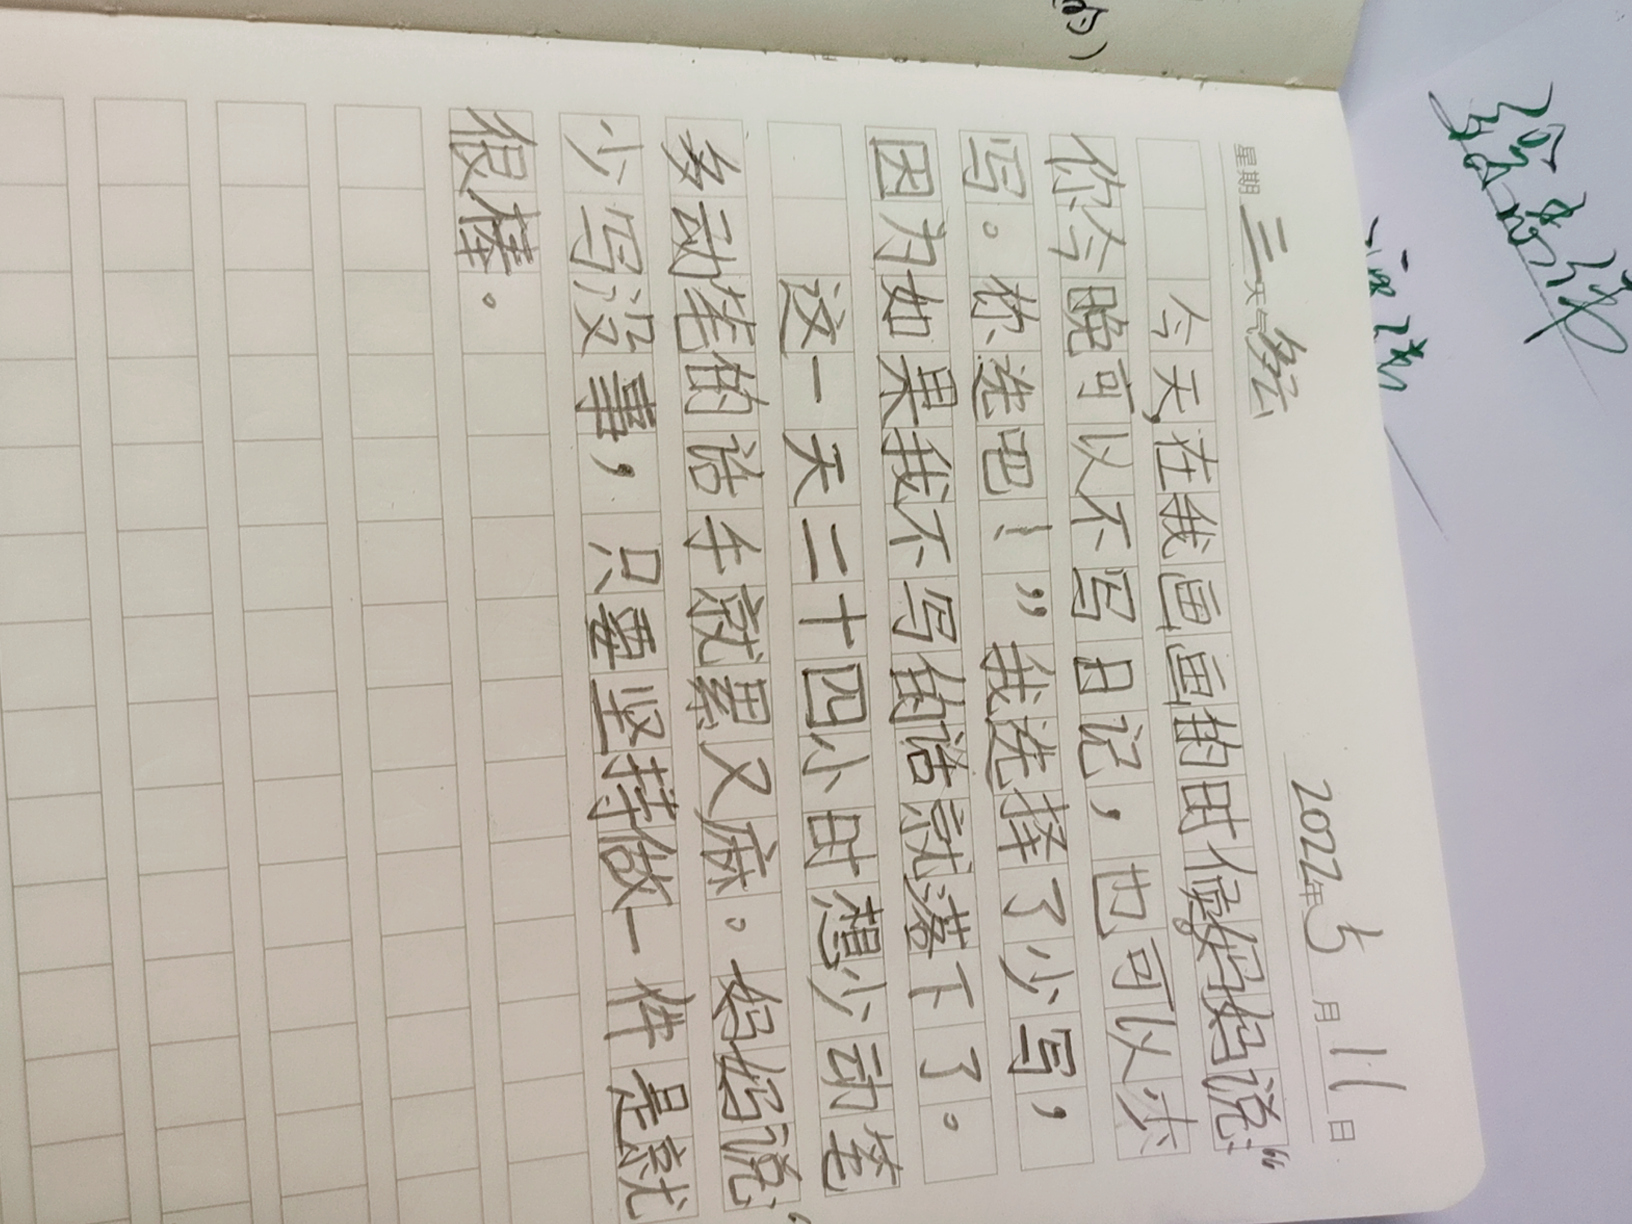 2022年5月11日
星期三 天气多云
今天,在我画画的时候妈妈说:“
你今晚可以不写日记，也可以少
写。你选吧！”我选择了少写，
因为如果我不写的话就落下了。
这一天二十四小时想少动笔
多动笔的话手就累又麻。妈妈说:“
少写没事，只要坚持做一件是就
很棒。